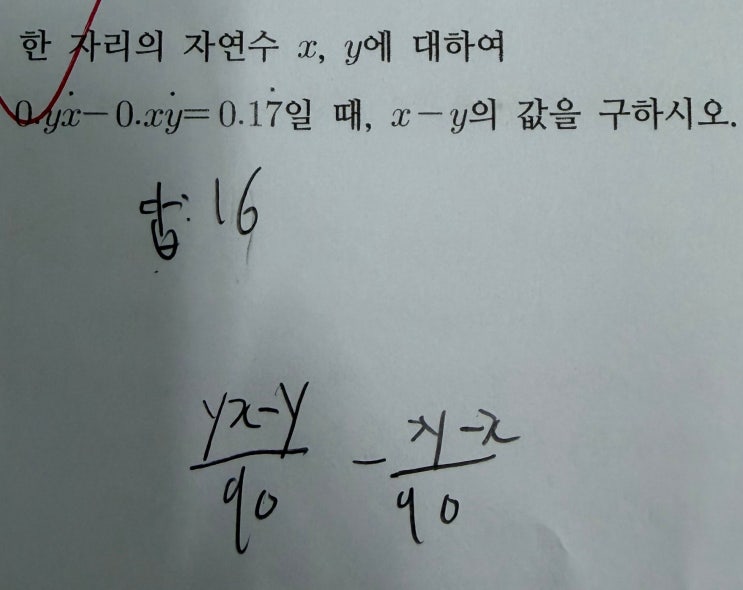 한 자리의 자연수 x, y에 대하여
0.yẋ−0.xẏ=0.17̇일 때, x−y의 값을 구하시오.
답: 16
yx-y/90 - xy-x/90